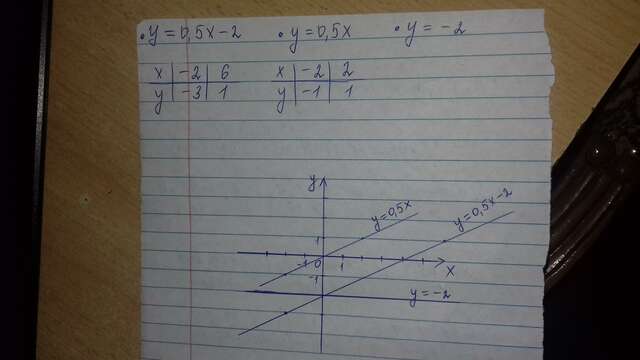 • y = 0,5x-2 • y = 0,5x • y = -2
x | -2 | 6 x | -2 | 2
y | -3 | 1 y | -1 | 1
y
y=0,5x
y=0,5x-2
1
-1 0 1
x
-1
y = -2